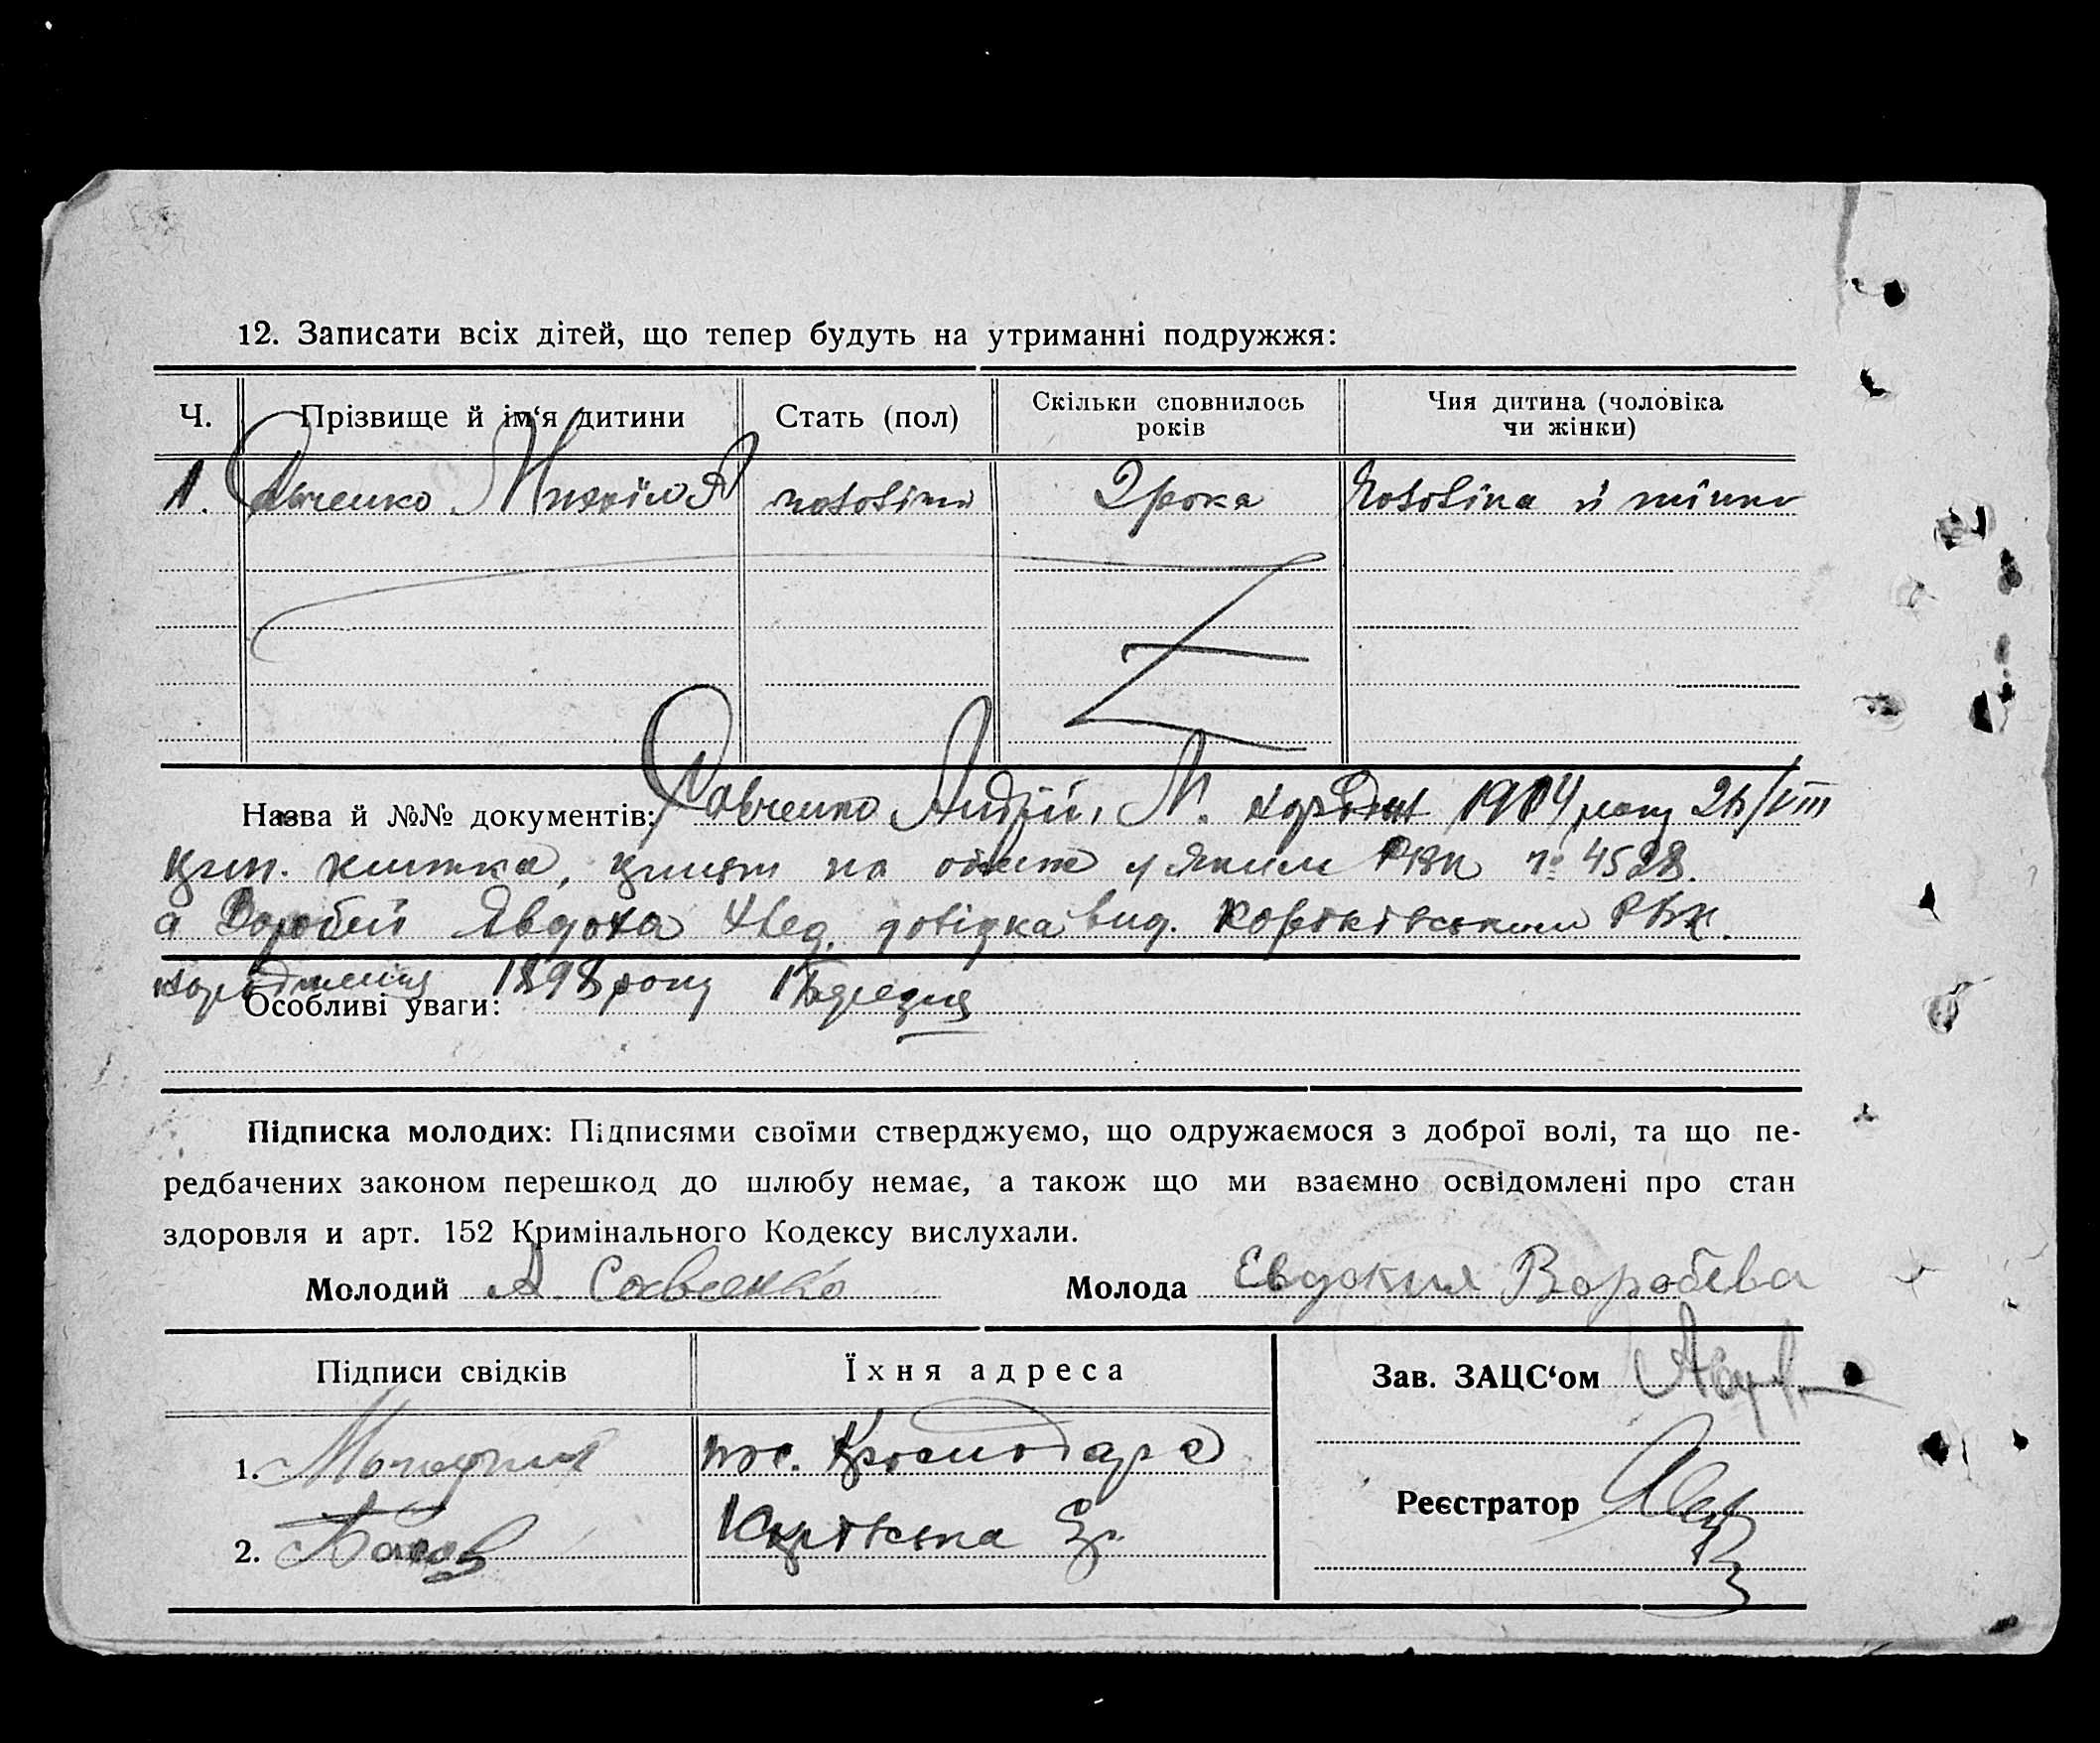 12. Записати всіх дітей, що тепер будуть на утриманні подружжя:
Ч. Прізвище й ім‘я дитини Стать (пол) Скільки сповнилось років Чия дитина (чоловіка чи жінки)
1. Савченко Михаїло А чоловіча 2 рока чоловіка й жінки
Назва й №№ документів: Савченко Андрій М. 1904 року 26/VIII
книжка, РВК № 4528.
а Воробей Явдоха довідка вид. РВК.
1898 року 1
Особливі уваги:
Підписка молодих: Підписями своїми стверджуємо, що одружаємося з доброї волі, та що пе-
редбачених законом перешкод до шлюбу немає, а також що ми взаємно освідомлені про стан
здоровля и арт. 152 Кримінального Кодексу вислухали.
Молодий А. Савченко Молода Евдокия Воробева
Підписи свідків Їхня адреса Зав. ЗАЦС‘ом
1. пос. Краснодара
Реєстратор
2.